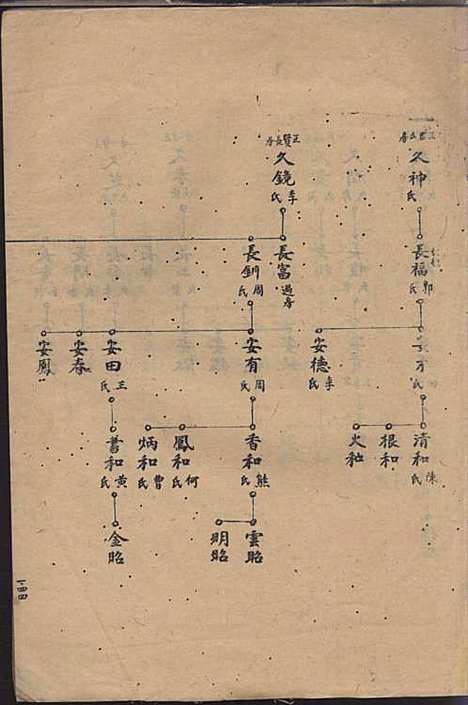 久神 氏
長福 郭氏
安才 氏
安德 李氏
清和 陳氏
根和
火和
正賢長房
久鏡 李氏
長富 過房
長釧 周氏
安有 周氏
安田 王氏
安春
安鳳
香和 熊氏
鳳和 何氏
炳和 曹氏
書和 黃氏
雲昭
明昭
金昭
一四四